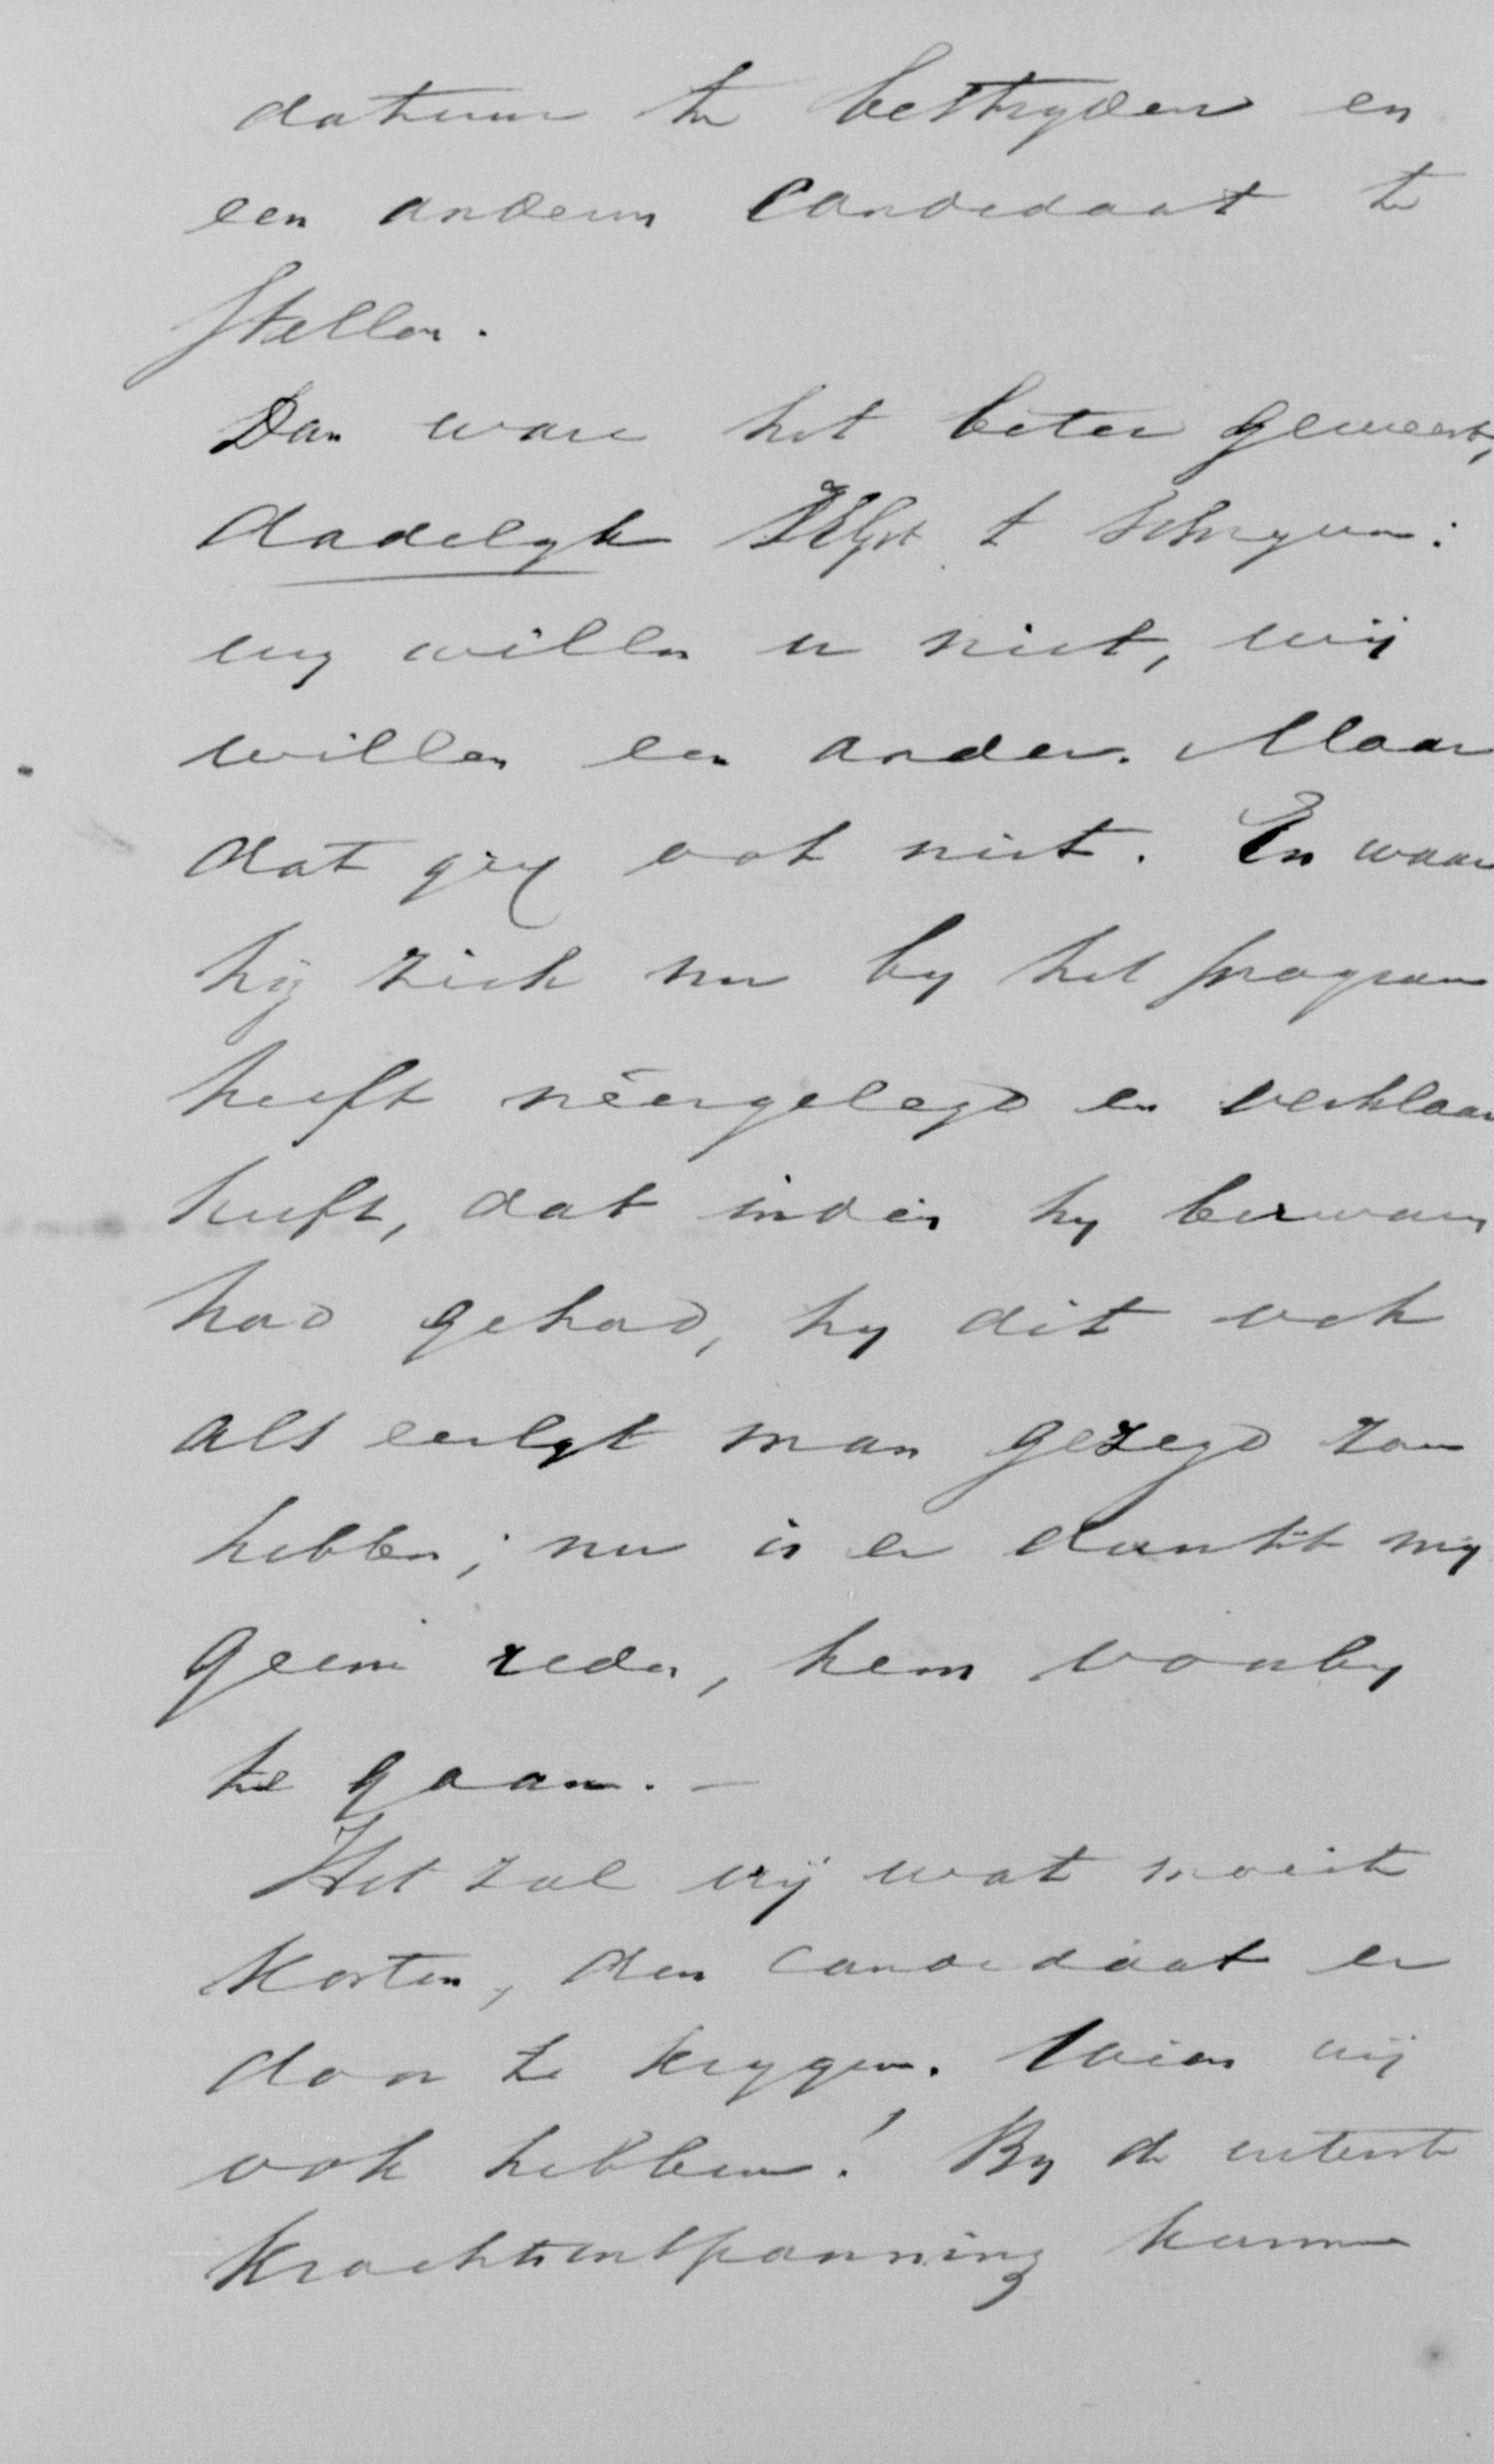 datuur te bestryden en
een anderen Candidaat te
stellen.
Dan ware het beter geweest,
dadelyk te schryven:
wy willen u niet, wij
willen een ander. Maar
dat ging ook niet. En waar
hij zich nu by het program
heeft néergelegd en verklaar
heeft, dat indien hy bezwaren
had gehad, hy dit ook
als eerlyk man gezegd zou
hebben; nu is er dunkt mij
geene reden, hem voorby
te gaan. —
Het zal vrij wat moeite
kosten, den candidaat er
door te krygen. Wien wij
ook hebben! By de uiterste
krachtsinspanning kunnen